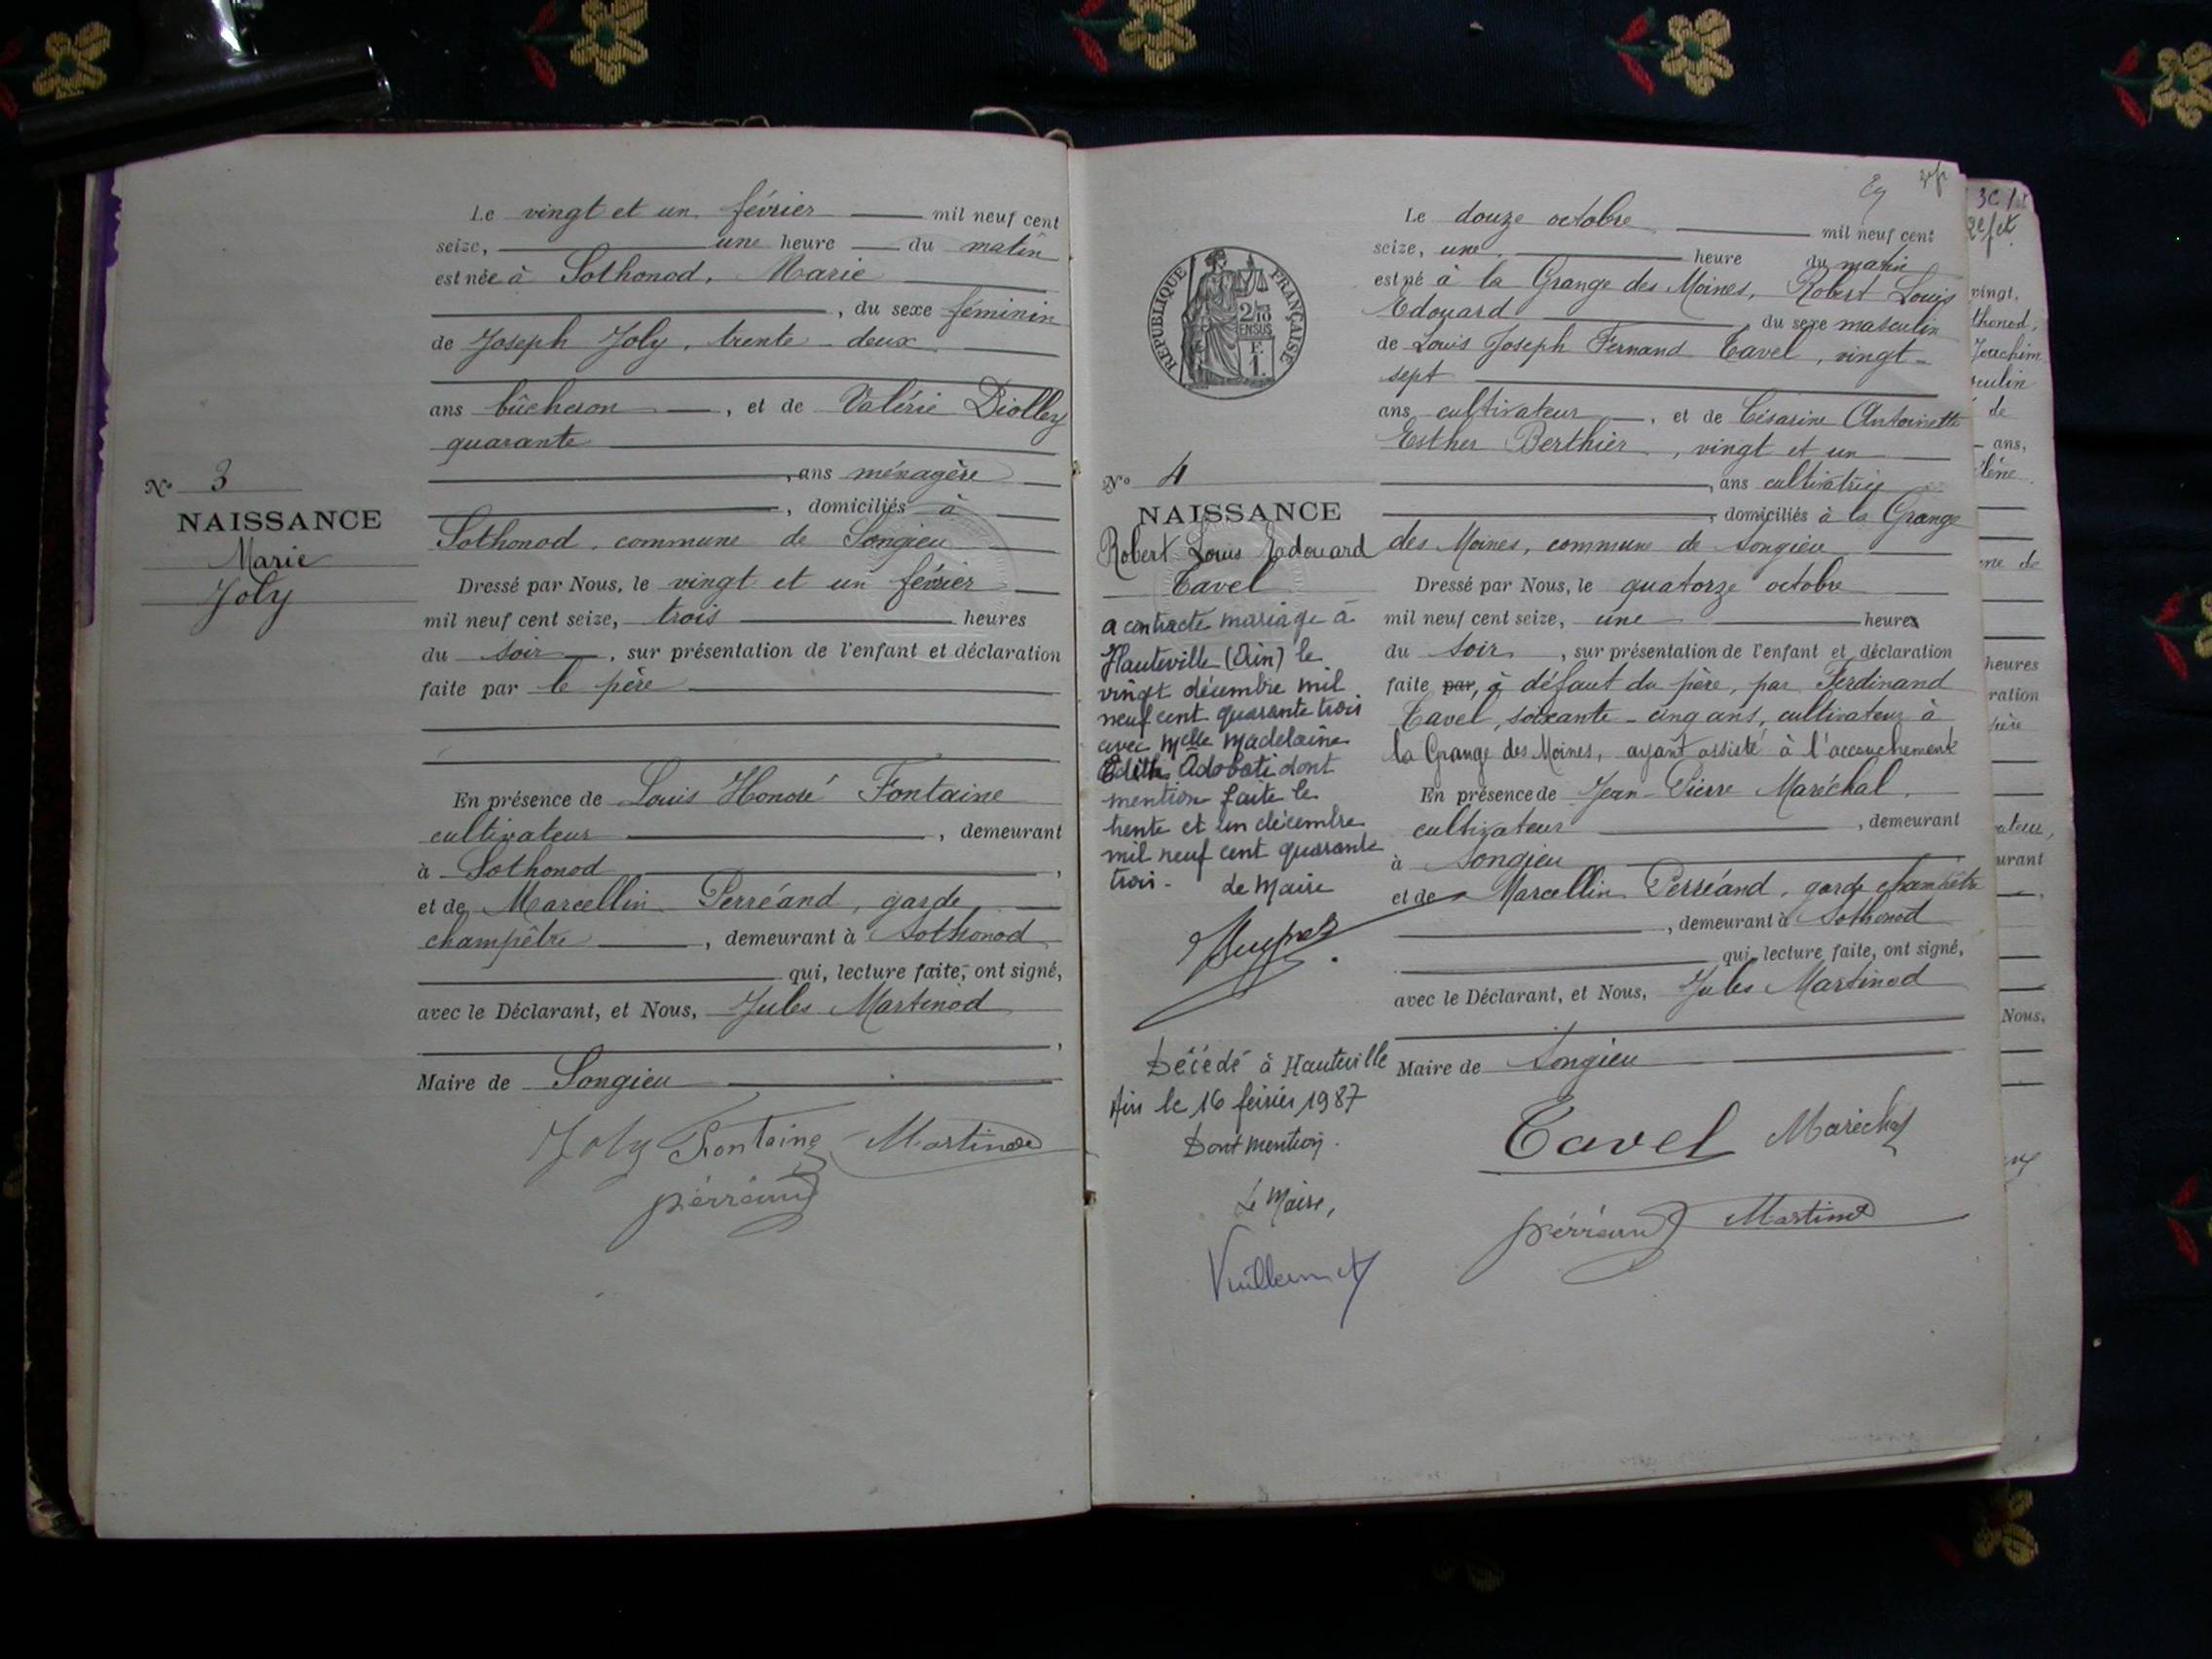 Le vingt et un février mil neuf cent
seize, une heure du matin
est née à Sothonod, Marie
, du sexe féminin
de Joseph Joly, trente-deux
ans bûcheron, et de Valérie Diolley
quarante
, ans ménagère
, domiciliés à
Sothonod, commune de Songieu
Dressé par Nous, le vingt et un février
mil neuf cent seize, trois heures
du soir, sur présentation de l'enfant et déclaration
faite par le père
En présence de Louis Honoré Fontaine
cultivateur, demeurant
à Sothonod,
et de Marcellin Perréand, garde
champêtre, demeurant à Sothonod
qui, lecture faite, ont signé,
avec le Déclarant, et Nous, Jules Martinod
,
Maire de Songieu
Joly Fontaine Martinod
perréand
No 3
NAISSANCE
Marie
Joly
REPUBLIQUE FRANÇAISE
2/10
EN SUS
F.
1.
No 4
NAISSANCE
Robert Louis Edouard
Tavel
a contracté mariage à
Hauteville (Ain) le
vingt décembre mil
neuf cent quarante trois
avec Melle Madelaine
Edith Adobati dont
mention faite le
trente et un décembre
mil neuf cent quarante
trois. Le Maire
Décédé à Hauteville
Ain le 16 février 1987
Dont mention.
Le Maire,
Vuillermet
Le douze octobre mil neuf cent
seize, une heure du matin
est né à la Grange des Moines, Robert Louis
Edouard du sexe masculin
de Louis Joseph Fernand Tavel, vingt-
sept
ans cultivateur, et de Césarine Antoinette
Esther Berthier, vingt et un
, ans cultivatrice
, domiciliés à la Grange
des Moines, commune de Songieu
Dressé par Nous, le quatorze octobre
mil neuf cent seize, une heures
du soir, sur présentation de l'enfant et déclaration
faite par, à défaut du père, par Ferdinand
Tavel, soixante-cinq ans, cultivateur à
la Grange des Moines, ayant assisté à l'accouchement
En présence de Jean-Pierre Maréchal,
cultivateur, demeurant
à Songieu
et de Marcellin Perréand, garde champêtre
, demeurant à Sothonod
qui, lecture faite, ont signé,
avec le Déclarant, et Nous, Jules Martinod
Maire de Songieu
Tavel Maréchal
perréand Martinod
vingt,
thonod,
Joachim
culin
de
ans,
lène
ne de
heures
ration
père
ateur,
urant
Nous,